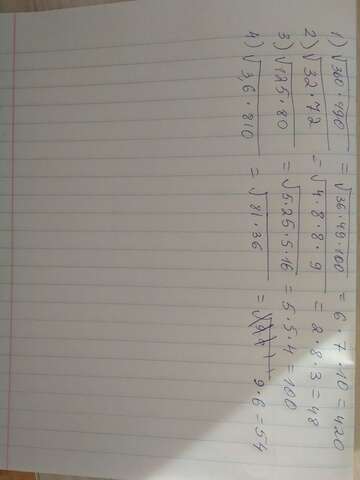 1) √360·490 = √36·49·100 = 6·7·10 = 420
2) √32·72 = √4·8·8·9 = 2·8·3 = 48
3) √125·80 = √5·25·5·16 = 5·5·4 = 100
4) √3,6·810 = √81·36 = 9·6 = 54